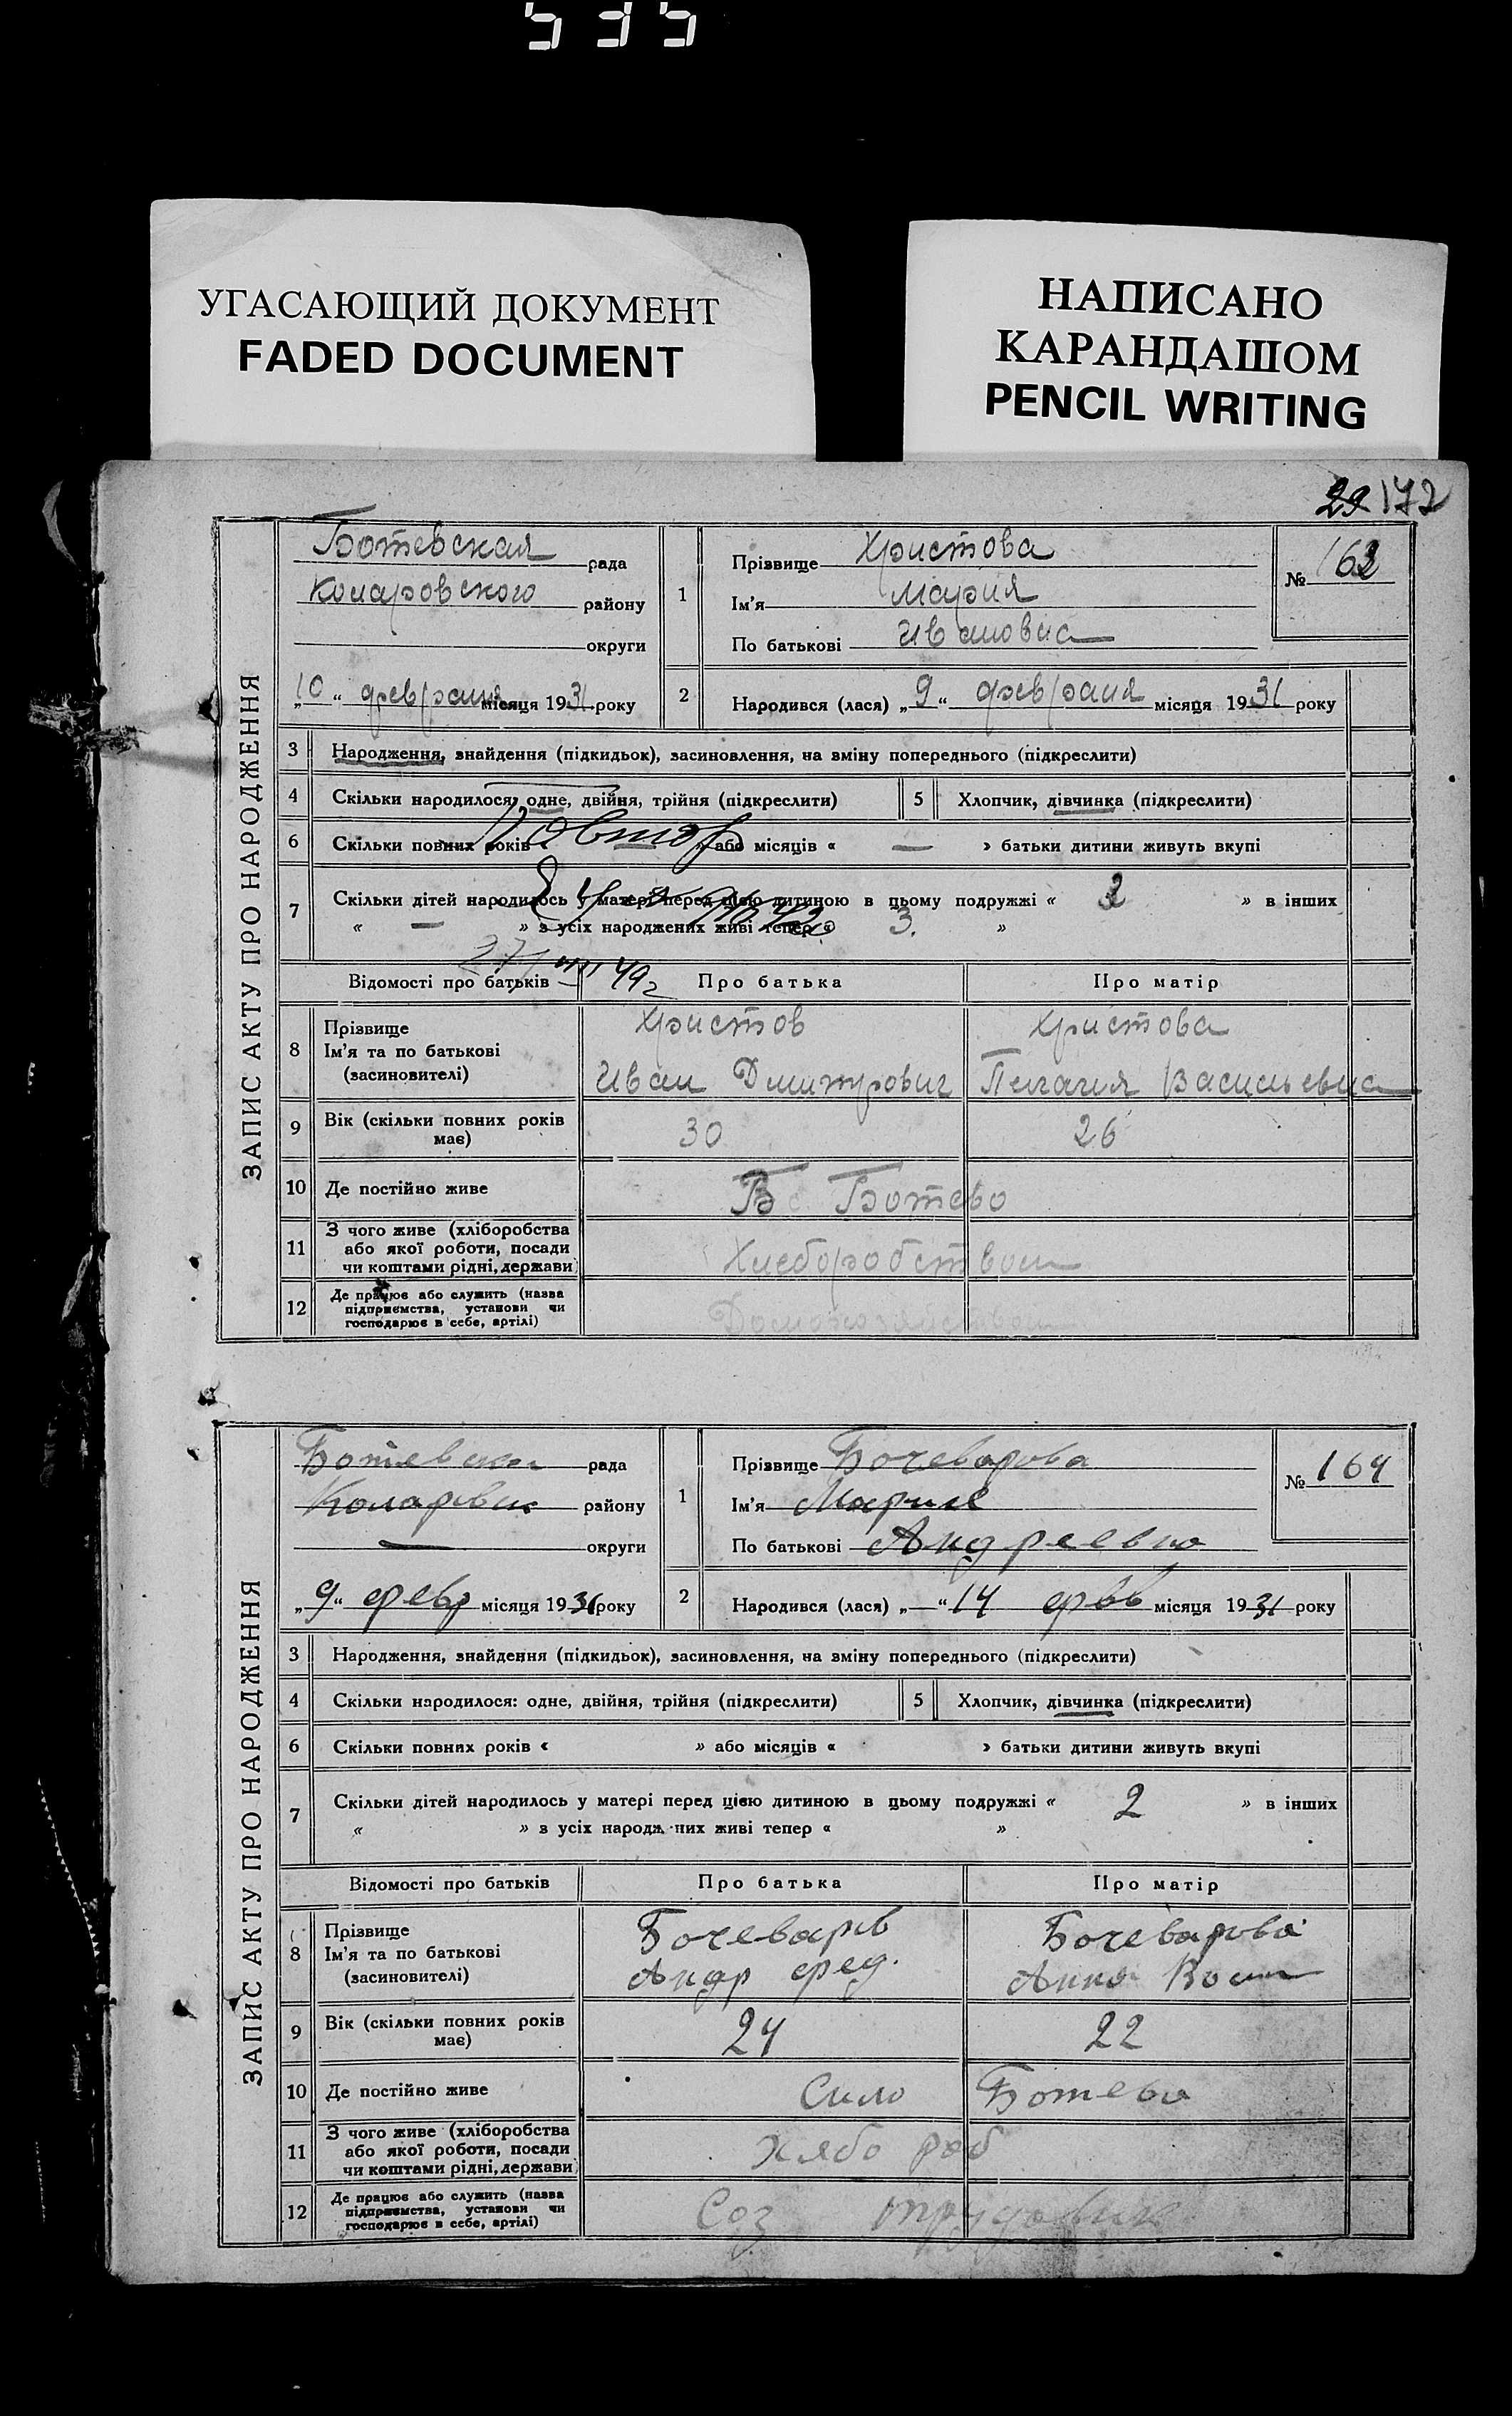 535
УГАСАЮЩИЙ ДОКУМЕНТ
FADED DOCUMENT
НАПИСАНО
КАРАНДАШОМ
PENCIL WRITING
29 172
ЗАПИС АКТУ ПРО НАРОДЖЕННЯ
Ботевская рада
Коларовского району
округи
„10“ февраля місяця 1931 року
1 Прізвище Христова
Ім'я Мария
По батькові Ивановна
№ 163
2 Народився (лася) „9“ февраля місяця 1931 року
3 Народження, знайдення (підкидьок), засиновлення, на зміну попереднього (підкреслити)
4 Скільки народилося: одне, двійня, трійня (підкреслити) 5 Хлопчик, дівчинка (підкреслити)
6 Скільки повних років або місяців « — » батьки дитини живуть вкупі
Повтор
7 Скільки дітей народилось у матері перед цією дитиною в цьому подружжі « 2 » в інших
« — » з усіх народжених живі тепер « 3. »
27/VIII 49г
Відомості про батьків Про батька Про матір
8 Прізвище Христов Христова
Ім'я та по батькові
(засновителі) Иван Дмитрович Пелагия Васильевна
9 Вік (скільки повних років має) 30 26
10 Де постійно живе Б Ботево
11 З чого живе (хліборобства
або якої роботи, посади
чи коштами рідні, держави) Хлеборобством
12 Де працює або служить (назва
підприємства, установи чи
господарює в себе, артілі)
ЗАПИС АКТУ ПРО НАРОДЖЕННЯ
Ботевска рада
Коларівск району
— округи
„9“ февр місяця 1931 року
1 Прізвище Бочеварова
Ім'я Мария
По батькові Андреевна
№ 164
2 Народився (лася) „—“ 14 февр місяця 1931 року
3 Народження, знайдення (підкидьок), засиновлення, на зміну попереднього (підкреслити)
4 Скільки народилося: одне, двійня, трійня (підкреслити) 5 Хлопчик, дівчинка (підкреслити)
6 Скільки повних років « » або місяців « » батьки дитини живуть вкупі
7 Скільки дітей народилось у матері перед цією дитиною в цьому подружжі « 2 » в інших
« » з усіх народжених живі тепер « »
Відомості про батьків Про батька Про матір
8 Прізвище Бочеварів Бочеварова
Ім'я та по батькові Андр Фед. Анна
(засиновителі)
9 Вік (скільки повних років має) 24 22
10 Де постійно живе Село Ботево
11 З чого живе (хліборобства
або якої роботи, посади
чи коштами рідні, держави) Хлябо роб
12 Де працює або служить (назва
підприємства, установи чи
господарює в себе, артілі) Соз